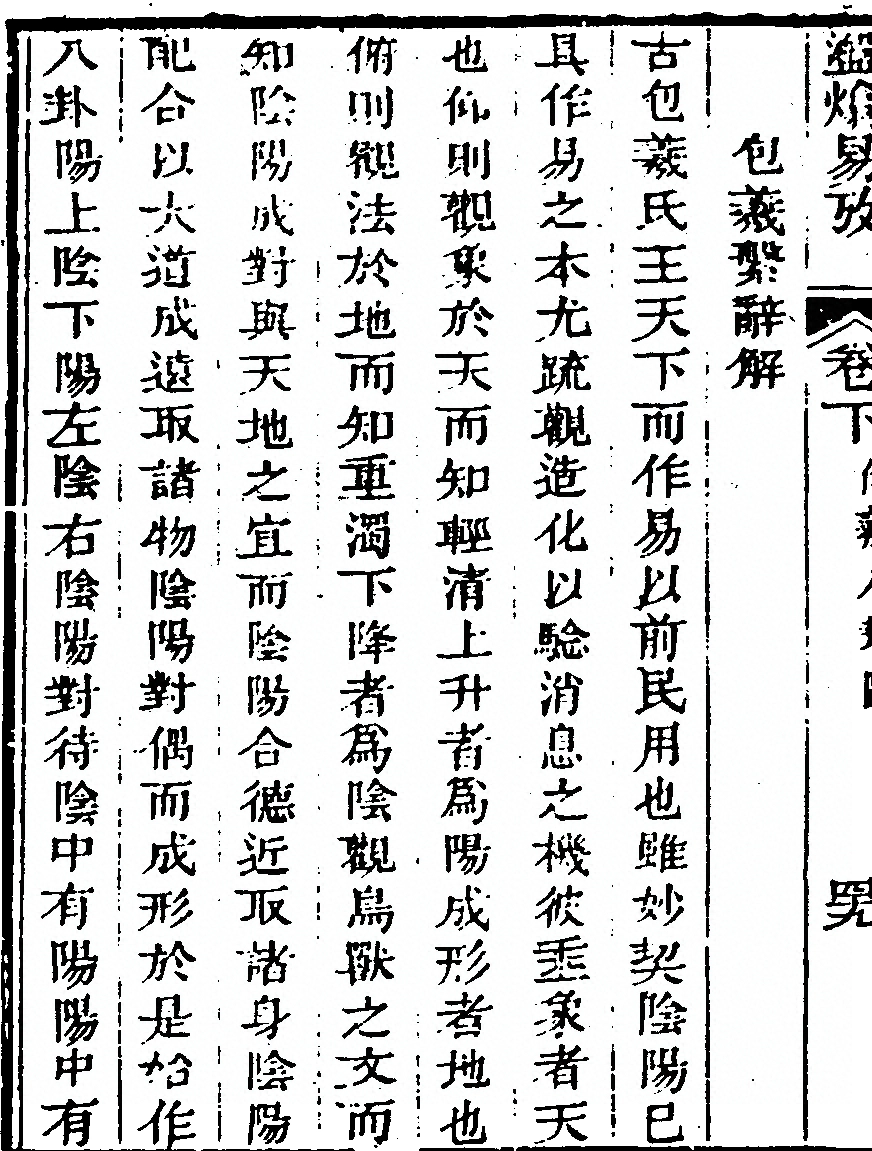 易攷
卷下
包羲繫辭解
古包羲氏王天下而作易以前民用也雖妙契陰陽已
具作易之本尤䟽觀造化以驗消息之機彼垂象者天
也仰則觀象於天而知輕清上升者爲陽成形者地也
俯則觀法於地而知重濁下降者爲陰觀鳥獸之文而
知陰陽成對與天地之宜而陰陽合德近取諸身陰陽
配合以大道成遠取諸物陰陽對偶而成形於是始作
八卦陽上陰下陽左陰右陰陽對待陰中有陽陽中有